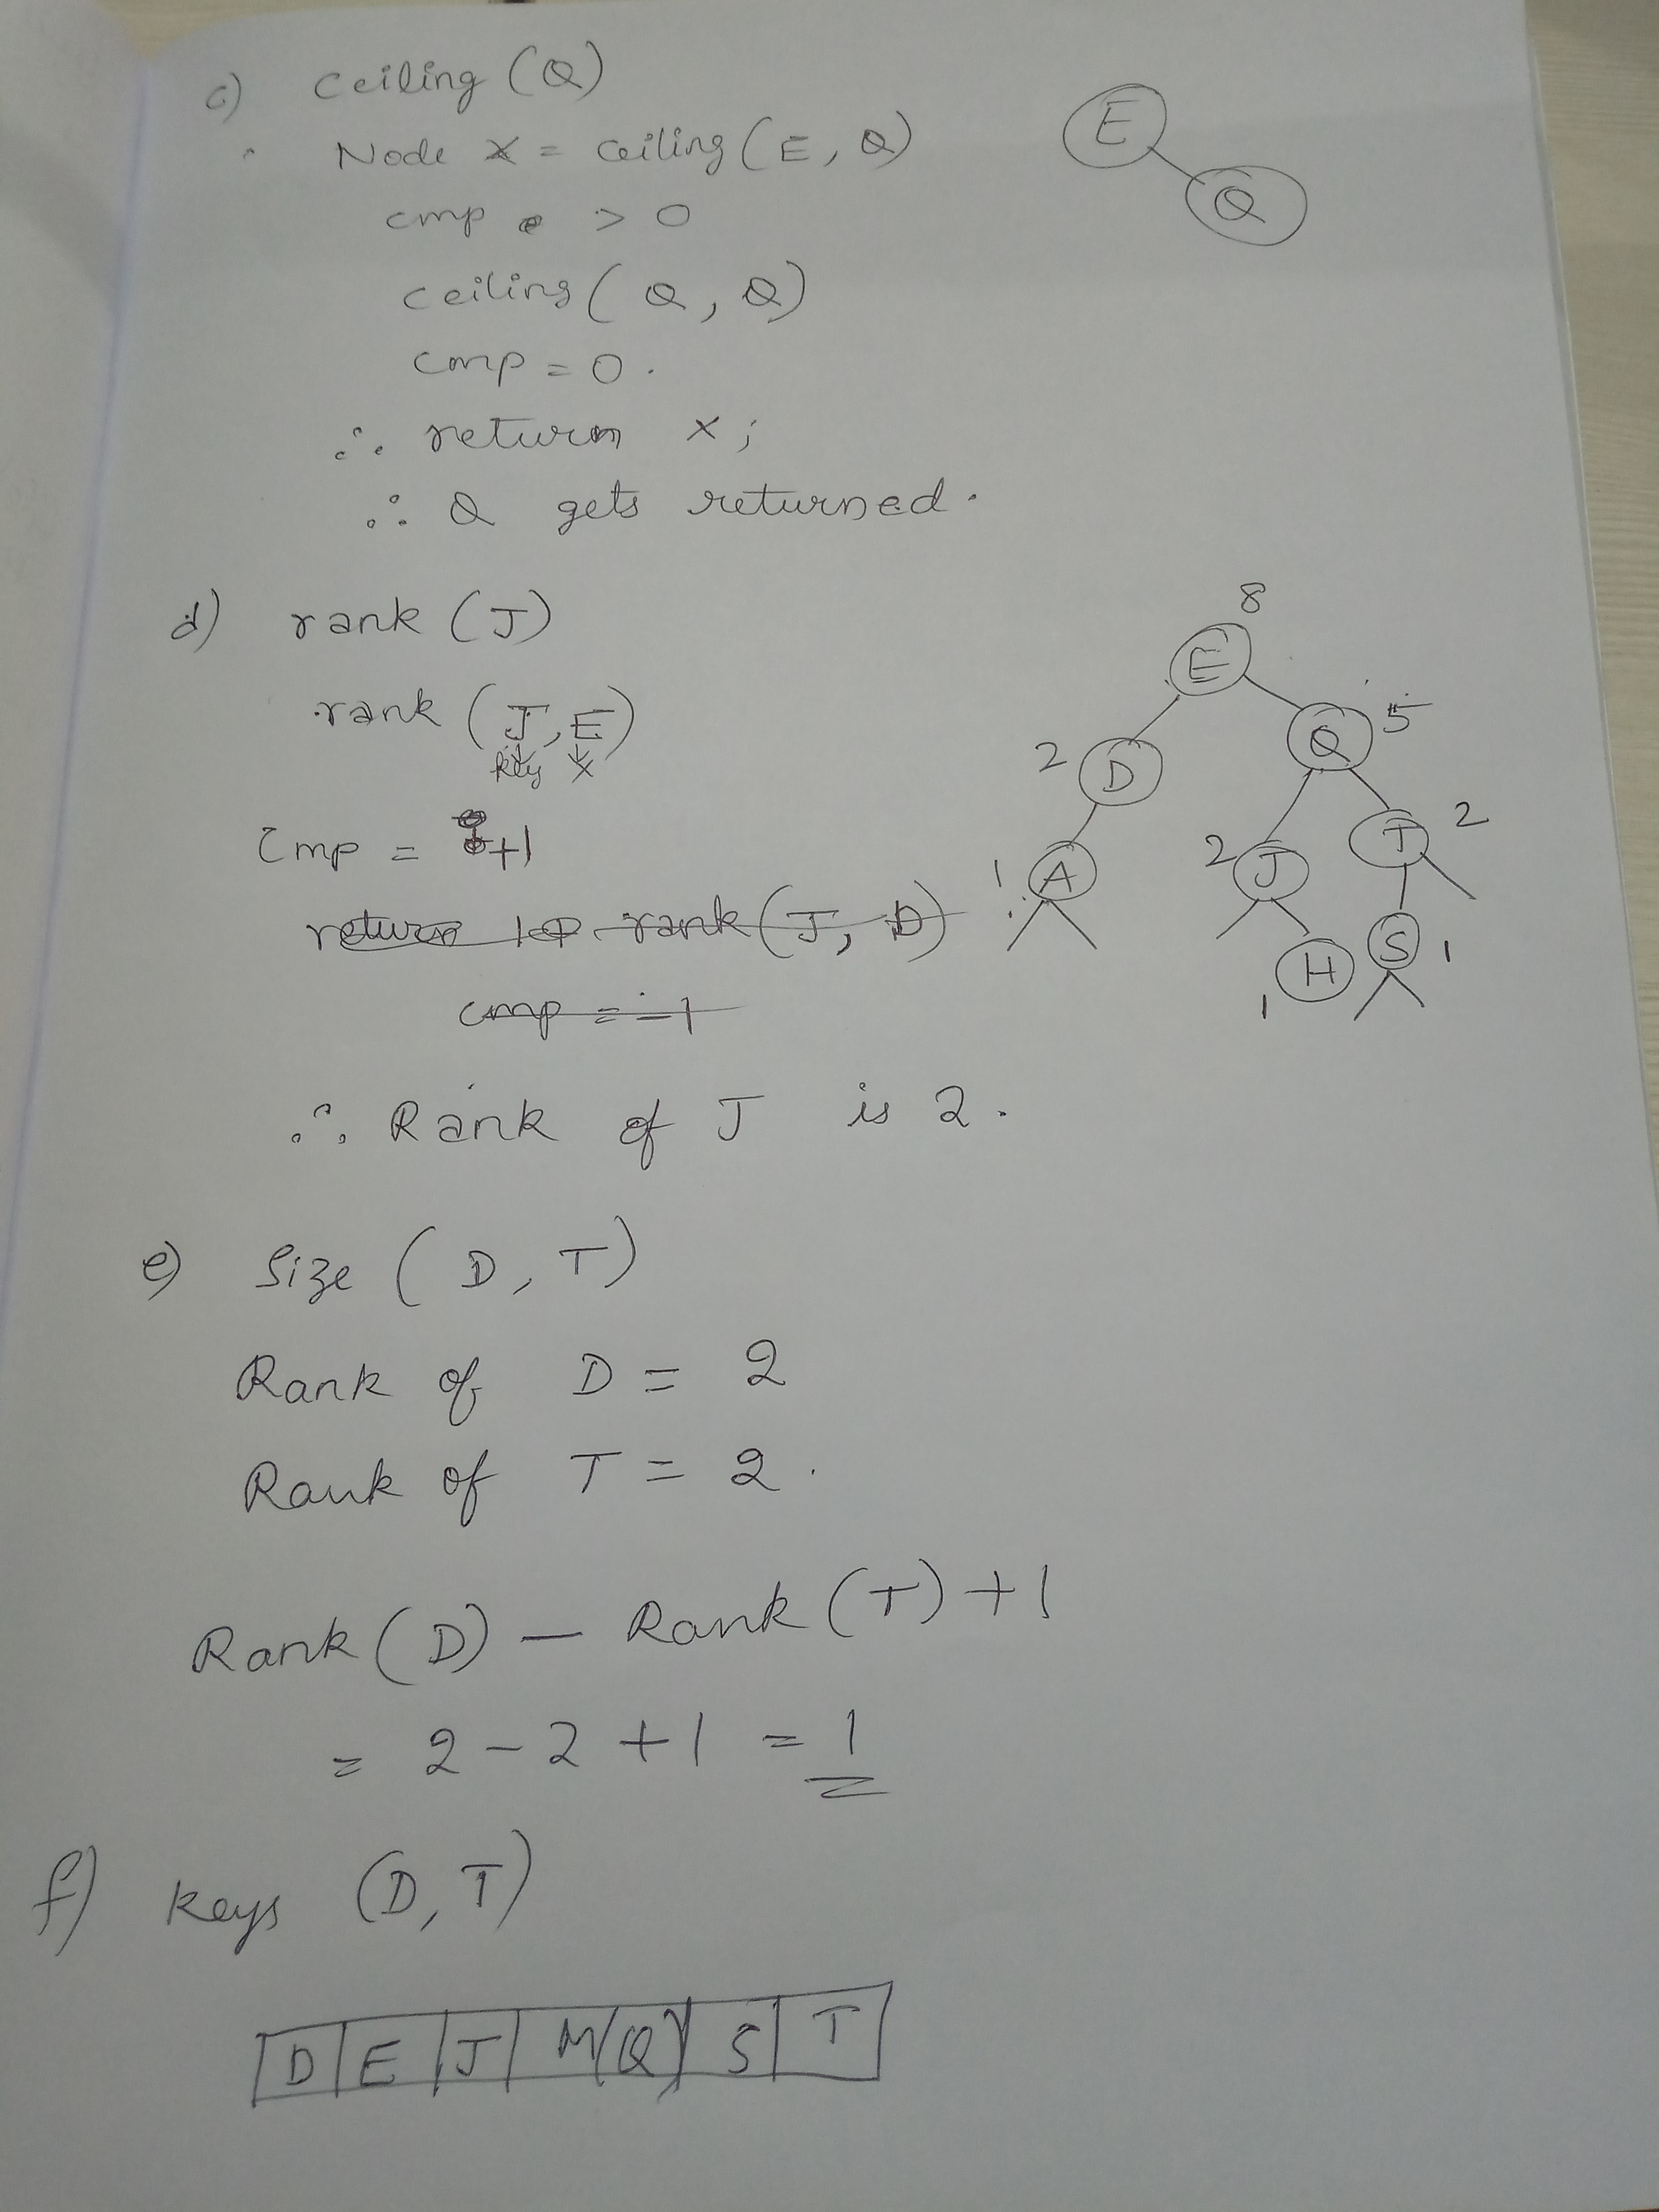 c) Ceiling (Q)
Node X = Ceiling (E, Q)
cmp > 0
ceiling (Q, Q)
cmp = 0.
∴ return x;
∴ Q gets returned.
E
Q
d) rank (J)
rank (J, E)
key x
Cmp = +1
return rank (J, D)
cmp = -1
∴ Rank of J is 2.
8
E
2 D
Q 5
1 A
2 J
T 2
H
1
S 1
e) Size (D, T)
Rank of D = 2
Rank of T = 2.
Rank (D) — Rank (T) + 1
= 2 - 2 + 1 = 1
f) keys (D, T)
D E J M Q S T